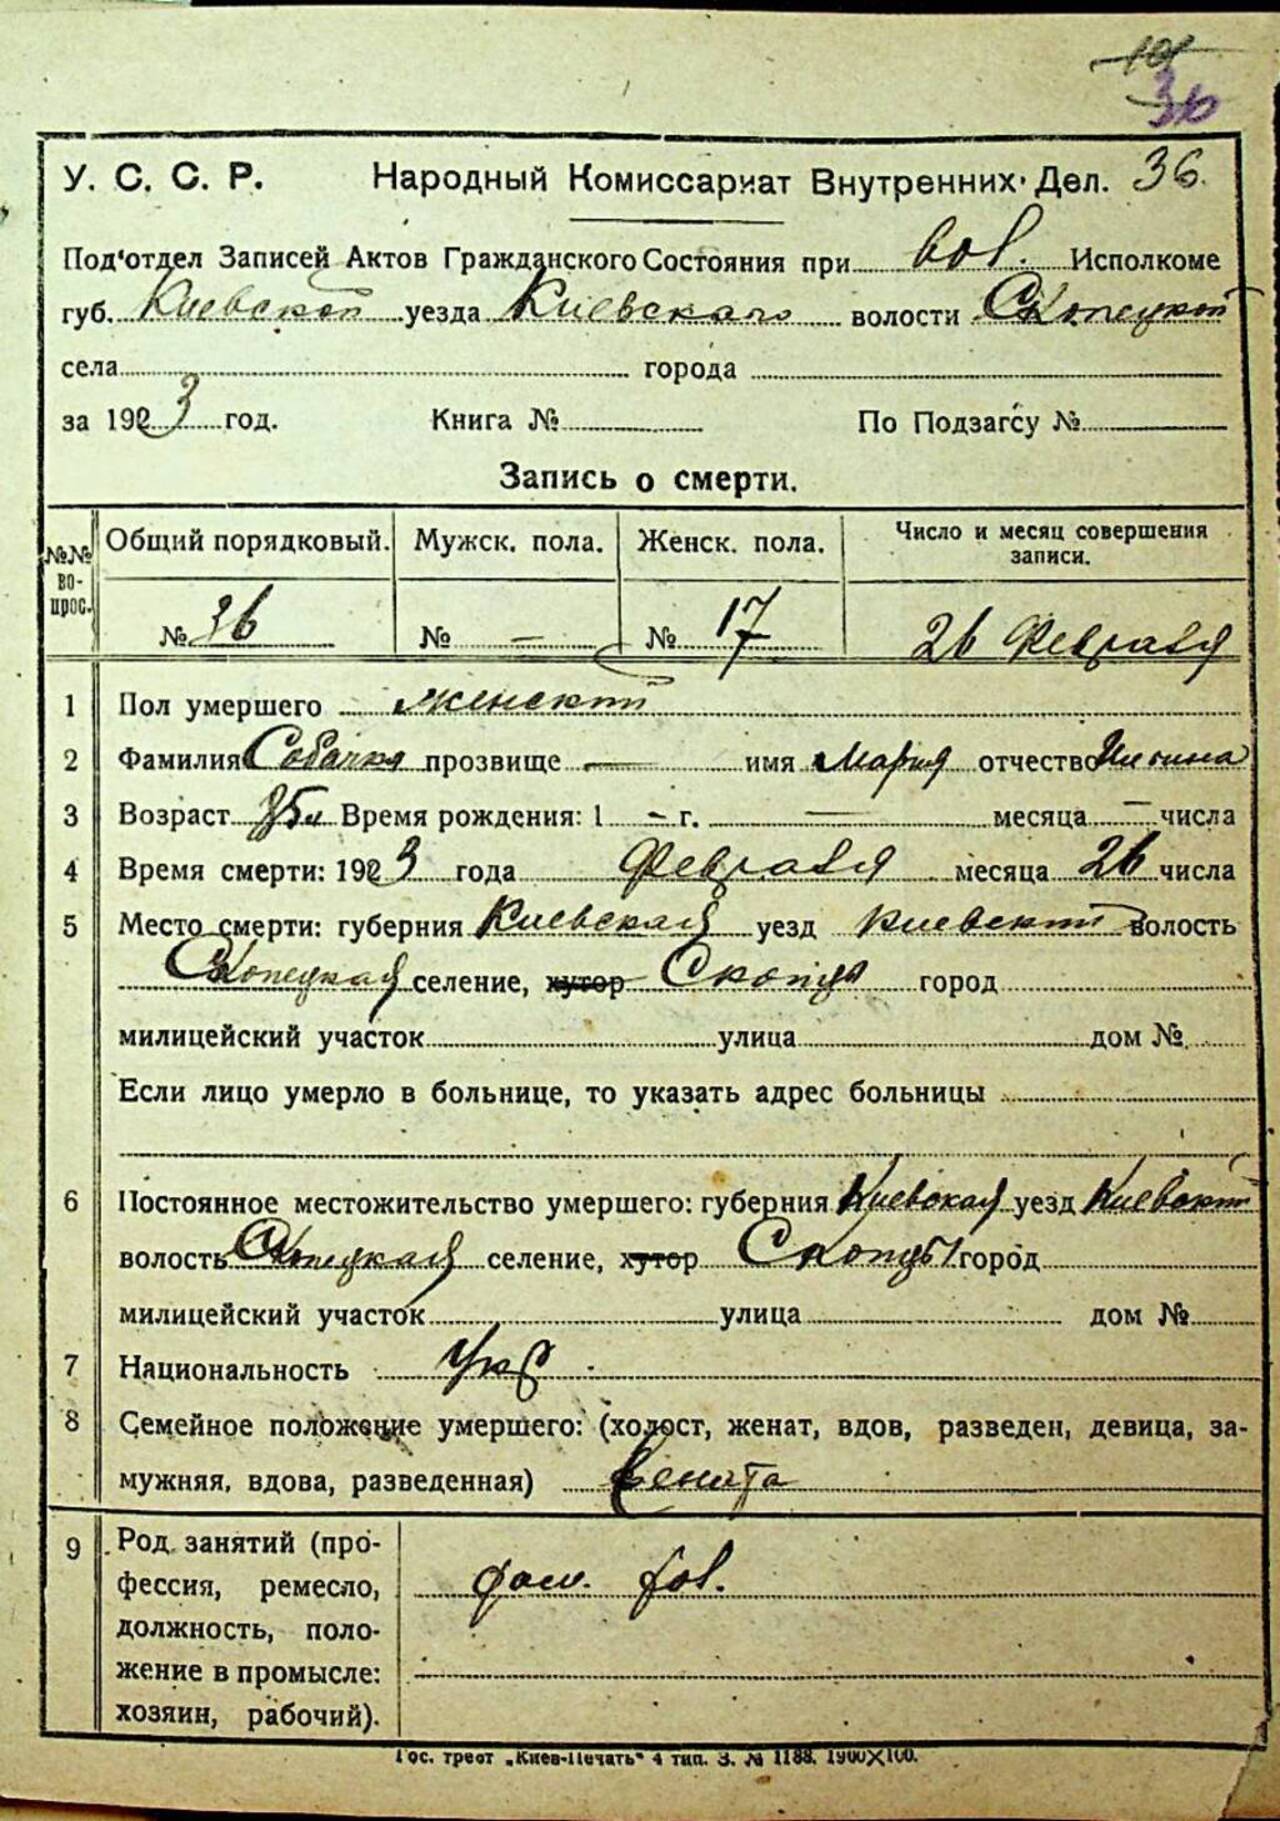 36
У. С. С. Р. Народный Комиссариат Внутренних Дел. 36.
Под'отдел Записей Актов Гражданского Состояния при вол. Исполкоме
губ. Киевской уезда Киевскаго волости Скопецкой
села города
за 1923 год. Книга № По Подзагсу №
Запись о смерти.
№№ во- прос. Общий порядковый. Мужск. пола. Женск. пола. Число и месяц совершения записи.
№ 36 № — № 17 26 Февраля
1 Пол умершего женский
2 Фамилия Собачка прозвище — имя Мария отчество
3 Возраст Время рождения: 1 - г. — месяца — числа
4 Время смерти: 1923 года Февраля месяца 26 числа
5 Место смерти: губерния Киевская уезд Киевский волость
Скопецкая селение, хутор Скопцы город
милицейский участок улица дом №
Если лицо умерло в больнице, то указать адрес больницы
6 Постоянное местожительство умершего: губерния Киевская уезд Киевский
волость Скопецкая селение, хутор Скопцы город
милицейский участок улица дом №
7 Национальность Укр
8 Семейное положение умершего: (холост, женат, вдов, разведен, девица, за-
мужняя, вдова, разведенная)
9 Род занятий (про-
фессия, ремесло,
должность, поло-
жение в промысле:
хозяин, рабочий).
Гос. трест „Киев-Печать" 4 тип. З. № 1188. 1900X100.